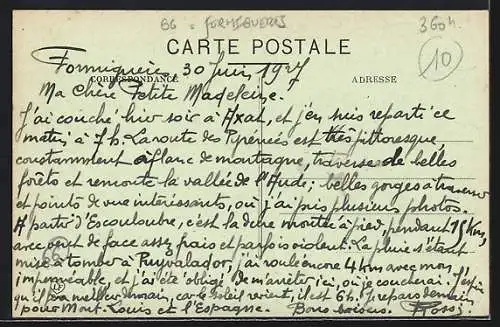 66 - FORMIGUERES
360h.
CARTE POSTALE
10
Formiguère 30 Juin 1927
CORRESPONDANCE
ADRESSE
Ma Chère Petite Madeleine.
J'ai couché hier soir à Axat, et j'en suis reparti ce
matin à 7h. La route des Pyrénées est très pittoresque,
constamment à flanc de montagne, traverse de belles
forêts et remonte la vallée de l'Aude; belles gorges à traverser
et points de vue intéressants, où j'ai pris plusieurs photos.
A partir d'Escouloubre, c'est la dure montée à pied, pendant 15 Km,
avec vent de face assez frais et parfois violent. La pluie s'étant
mise à tomber à Puyvalador, j'ai roulé encore 4 Km avec mon
imperméable, et j'ai été obligé de m'arrêter ici, où je coucherai.
qu'il fera meilleur demain, car le soleil revient, il est 6h. je repars demain
pour Mont-Louis et l'Espagne. Bons baisers.